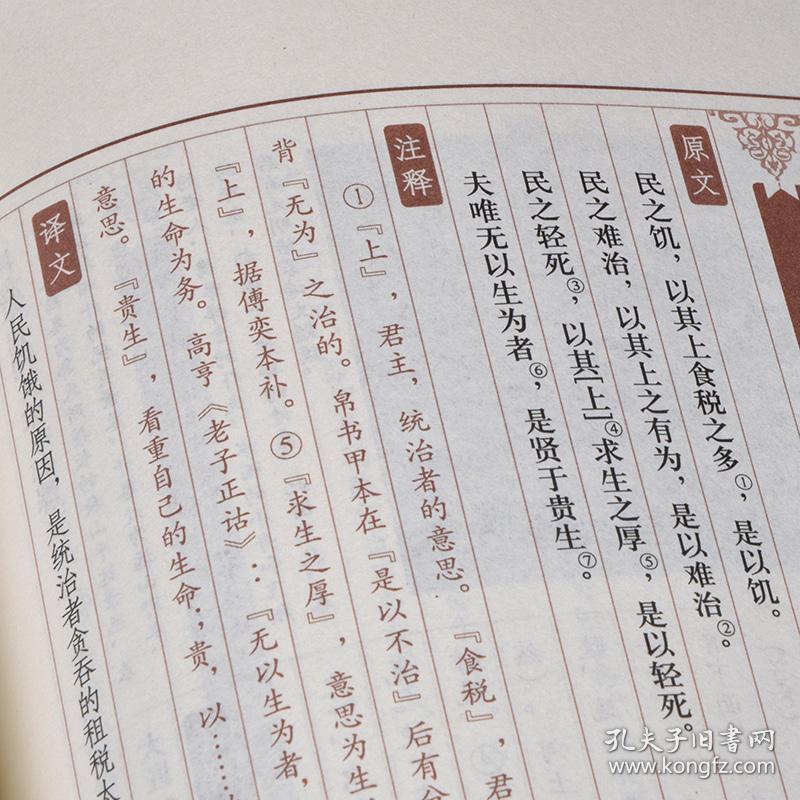 原文
民之饥，以其上食税之多①，是以饥。
民之难治，以其上之有为，是以难治②。
民之轻死③，以其[上]④求生之厚⑤，是以轻死。
夫唯无以生为者⑥，是贤于贵生⑦。
注释
①『上』，君主，统治者的意思。『食税』，君
背『无为』之治的。帛书甲本在『是以不治』后有
『上』，据傅奕本补。⑤『求生之厚』，意思为生
的生命为务。高亨《老子正诂》：『无以生为者，
意思。『贵生』，看重自己的生命；贵，以……
译文
人民饥饿的原因，是统治者贪吞的租税太
孔夫子旧书网
www.kongfz.com